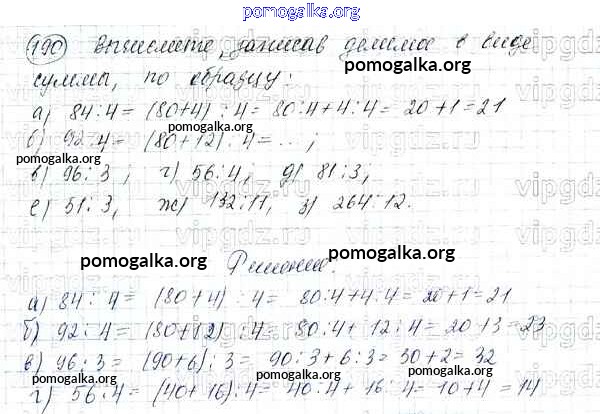 pomogalka.org
190) Вычислите, записав делимое в виде
суммы, по образцу:
pomogalka.org
а) 84 : 4 = (80+4) : 4 = 80:4+4:4 = 20+1=21
pomogalka.org
б) 92:4 = (80+12) : 4 = ... ;
pomogalka.org
pomogalka.org
в) 96 : 3 ; г) 56 : 4 ; д) 81 : 3 ;
е) 51 : 3, ж) 132:11, з) 264:12.
pomogalka.org
pomogalka.org
pomogalka.org
Решение.
а) 84 : 4 = (80+4) : 4 = 80:4+4:4 = 20+1=21
б) 92 : 4 = (80+12) : 4 = 80:4+ 12:4 = 20+3=23
в) 96 : 3 = (90+6) : 3 = 90:3+6:3 = 30+2= 32
pomogalka.org
pomogalka.org
г) 56 : 4 = (40+16) : 4 = 40:4+ 16:4 = 10+4=14